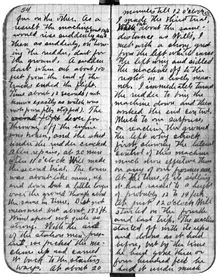 24
gun on the other. As a
result the machine would
rise suddenly to
then as suddenly, on turn-
ing the rudder, dart for
the ground. A sudden
dart when out about 100
feet from the end of the
tracks ended the flight.
Time about 12 seconds (not
known exactly as watch was
not promptly stopped). The
lever for
throwing off the engine
was broken, and the skid
under the rudder cracked.
After repairs, at 20 min.
after 11 o'clock Will made
the second trial. The course
was about like mine, up
and down but a little longer
over the ground though about
the same in time. Dist. not
measured but about 175 ft.
Wind speed not quite so
strong. With the aid
of the station men pres-
ent, we picked the ma-
chine up and carried
it back to the starting
ways. At about 20
minutes till 12 o'clock
I made the third trial.
When out about the same
distance as Will's, I
met with a strong gust
from the left which raised
the left wing and sidled
the machine off to the
right in a lively man-
ner. I immediately turned
the rudder to bring the
machine down and then
worked the end control.
Much to our surprise
on reversing the rudder
the left wing struck
first, showing the lateral
control of this machine
much more effective than
on any of our former ones.
At the time of its sidling
it had raised to a height
of probably 12 to 14 feet.
At just 12 o'clock Will
started on the fourth
and last trip. The machine
started off with its ups
and downs as it had
before, but by the time
he had gone three or
four hundred feet he
had it under much